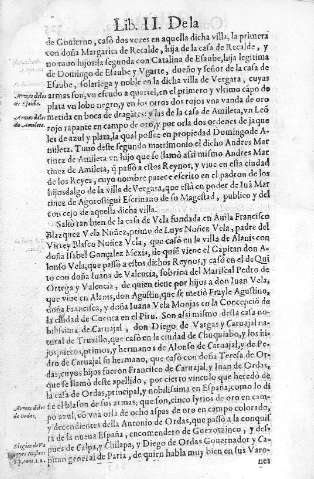 Lib. II. De la
de Guoierno, casó dos vezes en aquella dicha villa, la primera
con doña Margarita de Recalde, hija de la casa de Recalde, y
no tuuo hijos: la segunda con Catalina de Esaube, hija legitima
de Domingo de Esaube y Vgarte, dueño y señor de la casa de
Esaube, solariega y noble en la dicha villa de Vergara, cuyas
armas son, vn escudo a quartel, en el primero y vltimo cãpo de
plata vn lobo negro, y en los otros dos rojos vna vanda de oro
metida en boca de dragãtes: y las de la casa de Amileta, vn Leõ
rojo rapante en campo de oro, y por orla dos ordenes de jaque
les de azul y plata, la qual possee en propiedad Domingo de A-
mileta. Tuuo deste segundo matrimonio el dicho Andres Mar
tinez de Amileta vn hijo que se llamó assi mismo Andres Mar
tinez de Amileta, q̃ passó a estos Reynos, y viue en esta ciudad
de los Reyes, cuyo nombre parece escrito en el padron de los
hijosdalgo de la villa de Vergara, que està en poder de Iuã Mar
tinez de Escriuano de su Magestad, publico y del
concejo de aquella dicha villa.
Salió tan bien de la casa de Vela fundada en Auila Francisco
Blazquez Vela Nuñez, primo de Luys Nuñez Vela, padre del
Virrey Blasco Nuñez Vela, que casó en la villa de Alanis con
doña Isabel Gonçalez Mexia, de quiẽ viene el Capitan don A-
lonso Vela, que passó a estos dichos Reynos, y casó en el de Qui
to con doña Iuana de Valencia, sobrina del Mariscal Pedro de
Ortega y Valencia, de quien tiene por hijos a don Iuan Vela,
que viue en Alanis, don Agustin, que se metió Frayle Agustino,
doña Francisca, y doña Iuana Vela Monjas en la Concepciõ de
la ciudad de Cuenca en el Piru. Son assi mismo desta casa no-
bilissima de Caruajal, don Diego de Vargas y Caruajal na-
tural de Truxillo, que casó en la ciudad de Chuquiabo, y los hi-
jos, nietos, primos, y hermanos de Alonso de Caruajal, y de Pe-
dro de Caruajal su hermano, que casó con doña Teresa de Or-
das, cuyos hijos fueron Francisco de Caruajal, y Iuan de Ordas,
que se llamó deste apellido, por cierto vinculo que heredó de
la casa de Ordas, principal, y nobilissima en España, como lo di
ze el blason de sus armas, que son, cinco lyrios de oro en cam-
po azul, cõ vna orla de ocho aspas de oro en campo colorado,
y decendientes della Antonio de Ordas, que passó a la conquis
ta de la nueua España, encomendero de y des-
pues de y Chilapa, y Diego de Ordas Gouernador y Ca-
pitan general de Paria, de quien habla muy bien en sus Varo-
nes